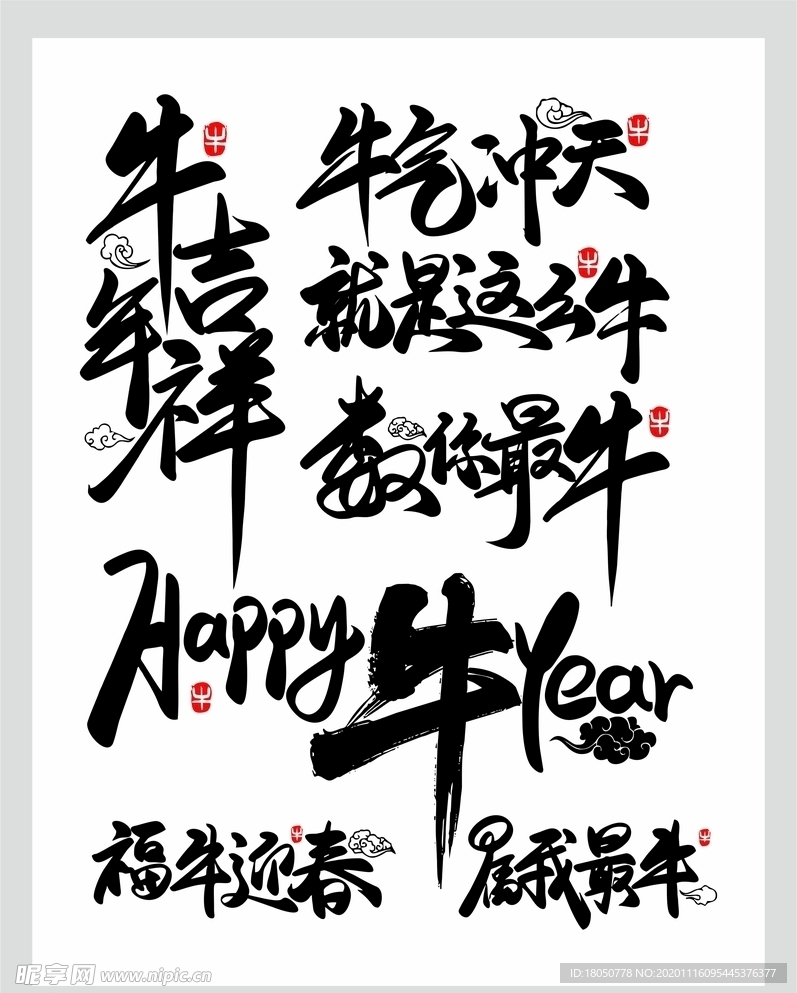 牛年吉祥
牛气冲天
就是这么牛
数你最牛
Happy 牛 Year
福牛迎春
属我最牛
昵享网 www.nipic.cn
ID:18050778 NO:20201116095445376377